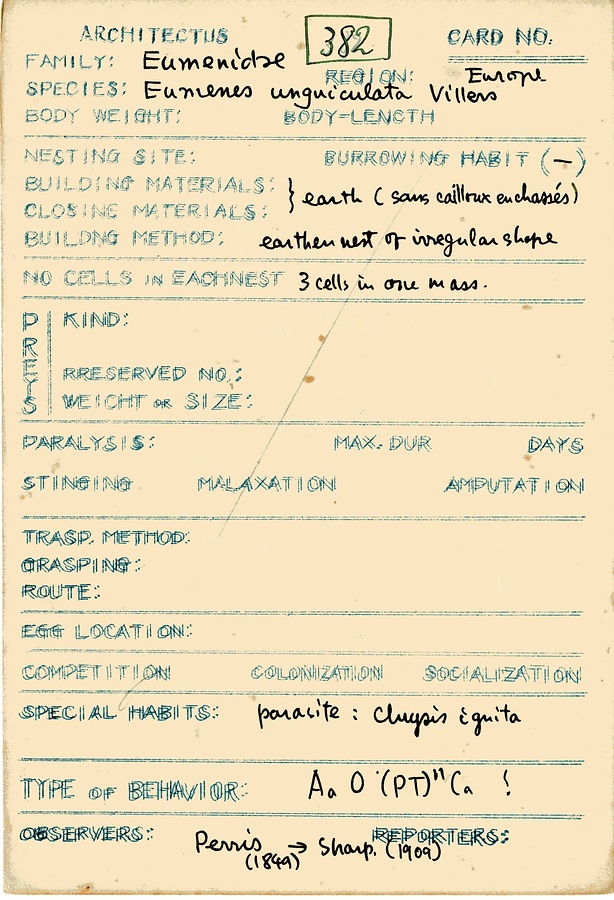 ARCHITECTUS 382 CARD NO.
FAMILY: Eumenidae REGION: Europe
SPECIES: Eumenes unguiculata Villers
BODY WEIGHT: BODY-LENGTH
NESTING SITE: BURROWING HABIT (—)
BUILDING MATERIALS: } earth (sans cailloux enchassés)
CLOSING MATERIALS:
BUILDNG METHOD: earthen nest of irregular shape
NO CELLS IN EACHNEST 3 cells in one mass.
PREYS KIND:
RRESERVED NO.:
WEIGHT OR SIZE:
PARALYSIS: MAX. DUR DAYS
STINGING MALAXATION AMPUTATION
TRASP. METHOD:
GRASPING:
ROUTE:
EGG LOCATION:
COMPETITION COLONIZATION SOCIALIZATION
SPECIAL HABITS: paracite : Chrysis ignita
TYPE OF BEHAVIOR: Aa O (PT)ⁿ Ca !
OBSERVERS: REPORTERS:
Perris → Sharp. (1909)
(1849)